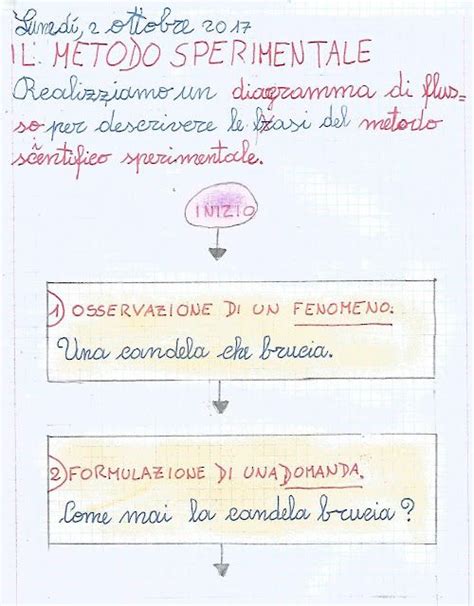 Lunedí, 2 ottobre 2017
IL METODO SPERIMENTALE
Realizziamo un diagramma di flus=
so per descrivere le fasi del metodo
scientifico sperimentale.
INIZIO
1) OSSERVAZIONE DI UN FENOMENO:
Una candela che brucia.
2) FORMULAZIONE DI UNA DOMANDA.
Come mai la candela brucia?